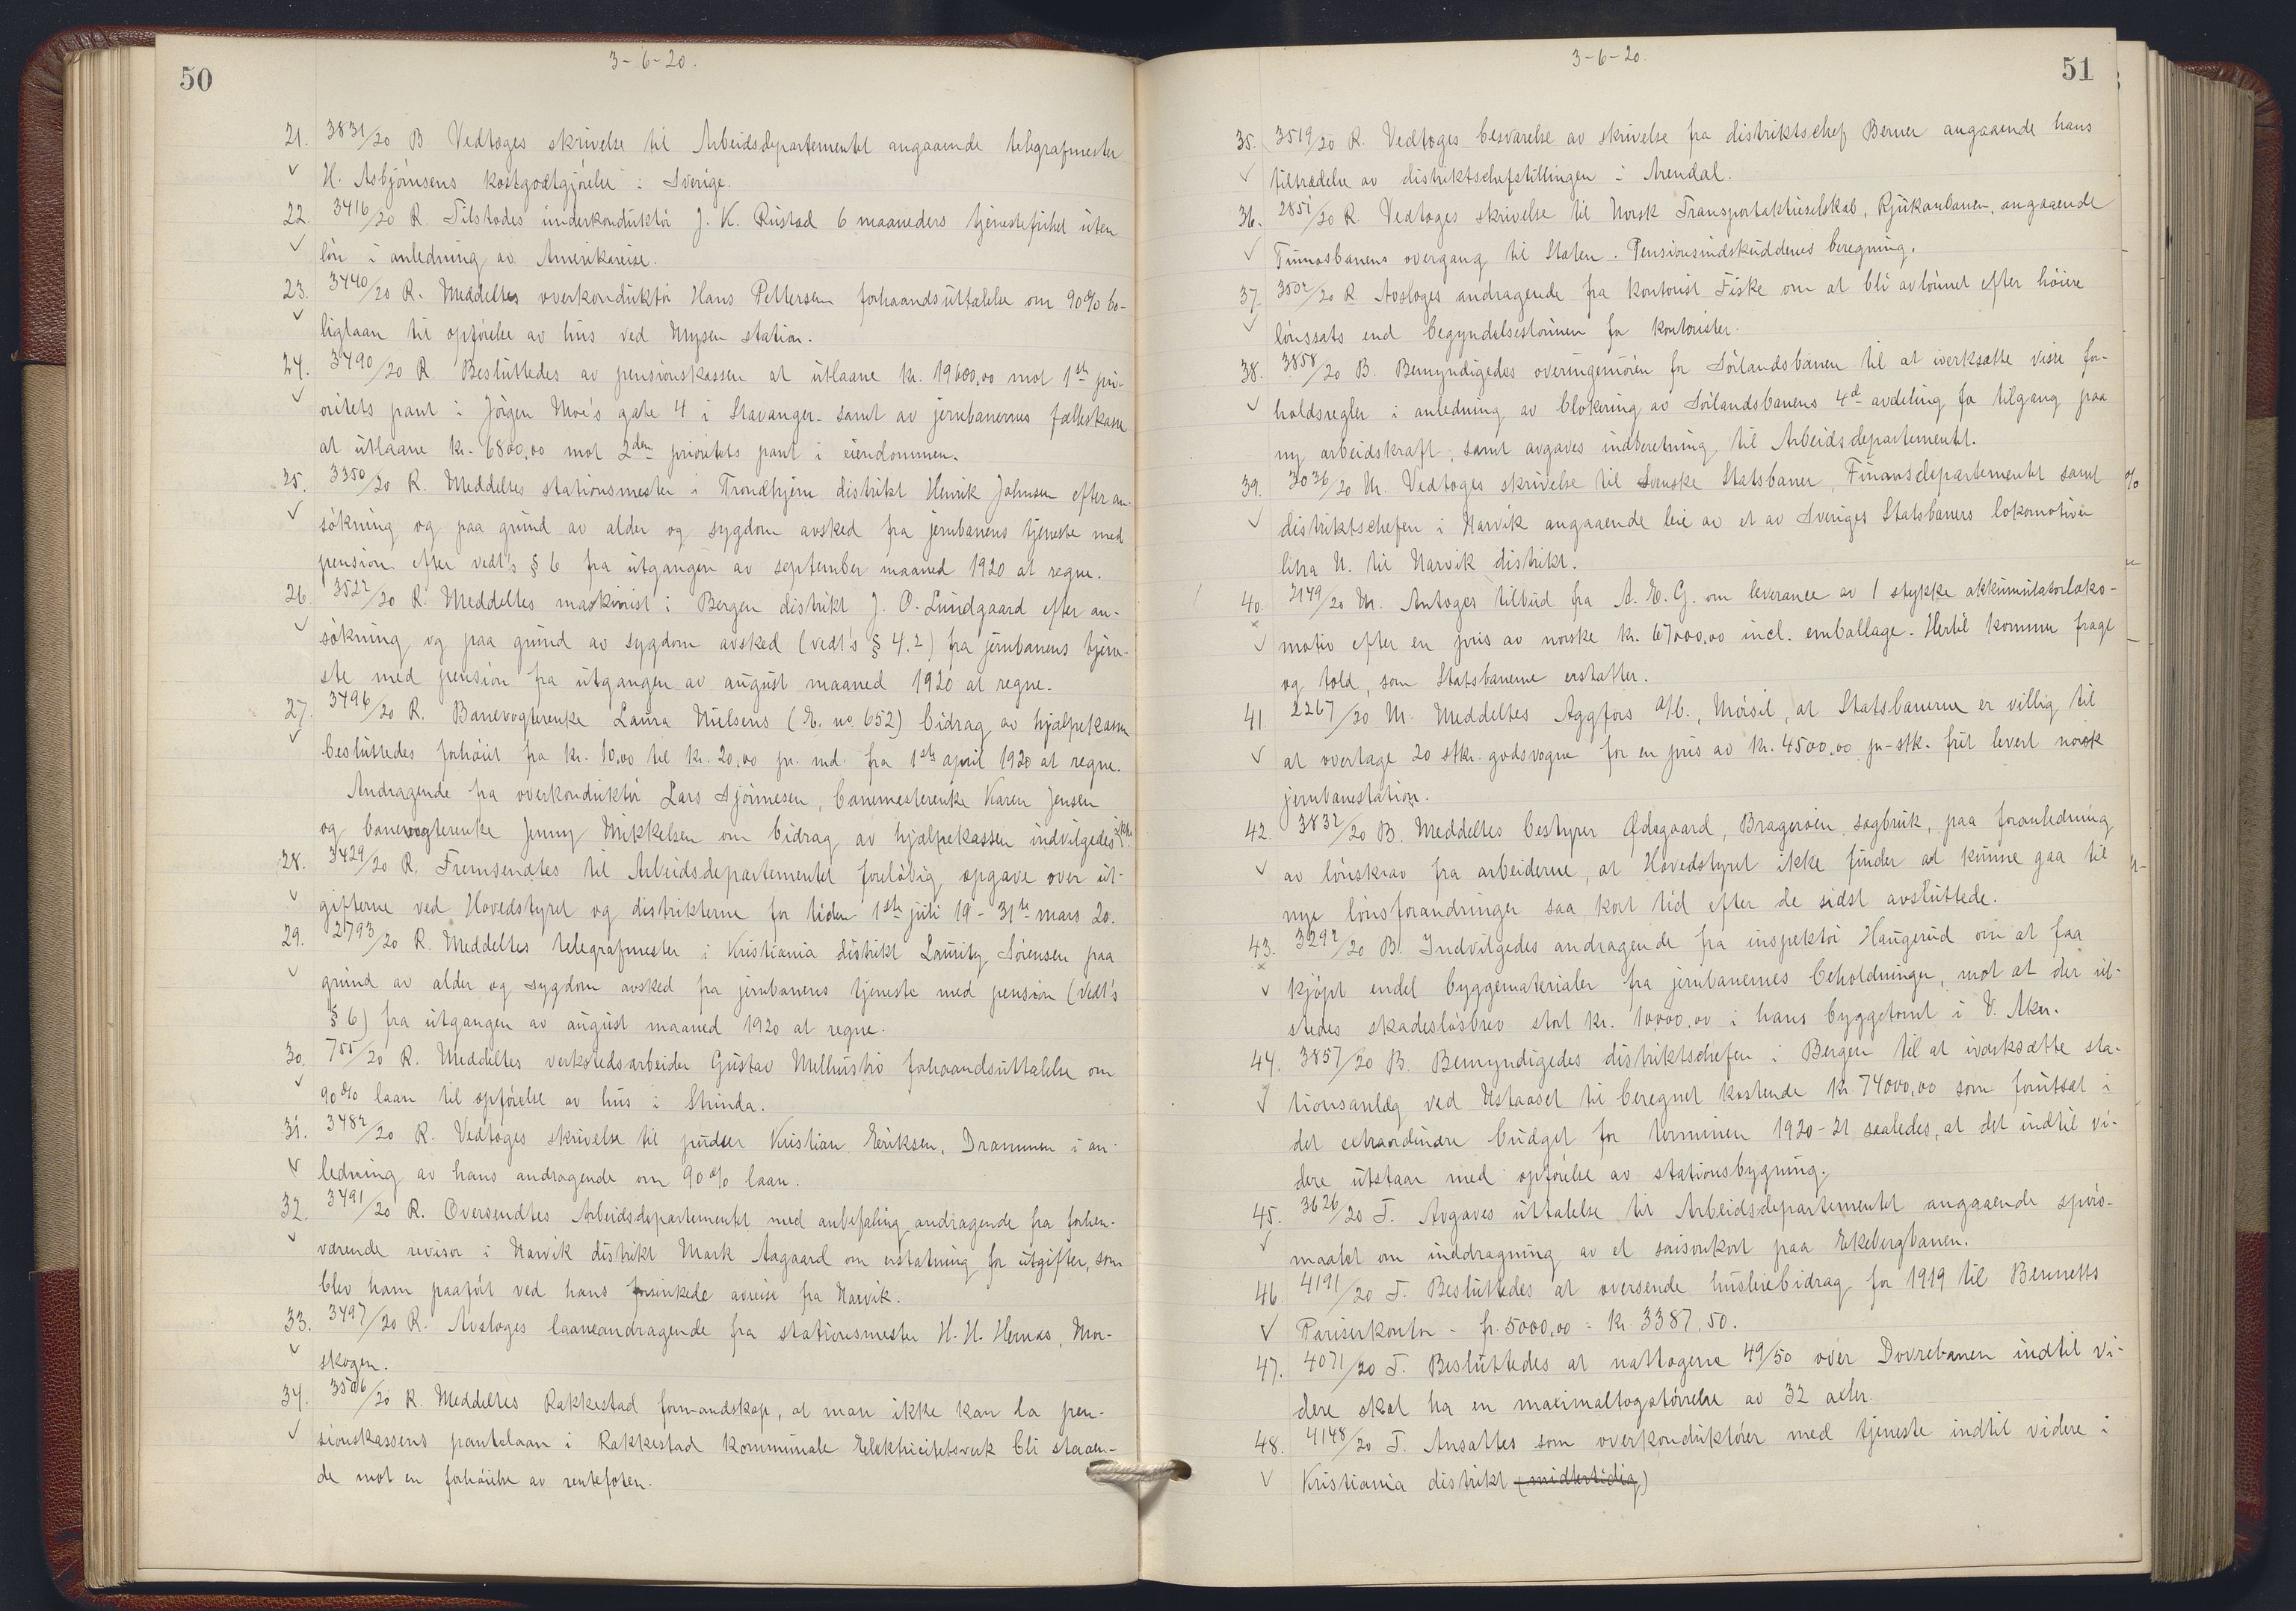 50
3-6-20.
21. 3831/20 B Vedtoges skrivelse til Arbeidsdepartementet angaaende telegrafmester
✓ H. Asbjörnsens kostgodtgjörelse i Sverige.
22. 3416/20 R. Tilstodes underkonduktör J. K. Rustad 6 maaneders tjenestefrihet uten
✓ lön i anledning av Amerikareise.
23. 3440/20 R. Meddeltes overkonduktör Hans Pettersen forhaandsuttalelse om 90% bo-
✓ liglaan til opförelse av hus ved Mysen station.
24. 3490/20 R. Besluttedes av pensionskassen at utlaane kr. 19600,00 mot 1ste pri-
✓ oritets pant i Jörgen Moe's gate 4 i Stavanger samt av jernbanernes fælleskasse
at utlaane kr. 6800,00 mot 2den prioritets pant i eiendommen.
25. 3350/20 R. Meddeltes stationsmester i Trondhjem distrikt Henrik Johnsen efter an-
✓ sökning og paa grund av alder og sygdom avsked fra jernbanens tjeneste med
pension efter vedt's § 6 fra utgangen av september maaned 1920 at regne.
26. 3522/20 R. Meddeltes maskinist i Bergen distrikt J. O. Lundgaard efter an-
✓ sökning og paa grund av sygdom avsked (vedt's § 4.2) fra jernbanens tjene-
ste med pension fra utgangen av august maaned 1920 at regne.
27. 3496/20 R. Banevogterenke Laura Nielsens (E. no. 652) bidrag av hjælpekassen
✓ besluttedes forhöiet fra kr. 10,00 til kr. 20,00 pr. md. fra 1ste april 1920 at regne.
Andragende fra overkonduktör Lars Sjörnesen, banemesterenke Karen Jensen
og banevogterenke Jenny Mikkelsen om bidrag av hjælpekassen indvilgedes ikke.
28. 3429/20 R. Fremsendtes til Arbeidsdepartementet forelöbig opgave over ut-
✓ gifterne ved Hovedstyret og distrikterne for tiden 1ste juli 19 - 31te mars 20.
29. 2793/20 R. Meddeltes telegrafmester i Kristiania distrikt Lauritz Sörensen paa
✓ grund av alder og sygdom avsked fra jernbanens tjeneste med pension (vedt's
§ 6) fra utgangen av august maaned 1920 at regne.
30. 755/20 R. Meddeltes verkstedsarbeider Gustav Melhuströ forhaandsuttalelse om
✓ 90% laan til opförelse av hus i Strinda.
31. 3482/20 R. Vedtoges skrivelse til pudser Kristian Eriksen, Drammen i an-
✓ ledning av hans andragende om 90% laan.
32. 3491/20 R. Oversendtes Arbeidsdepartementet med anbefaling andragende fra forhen-
✓ værende revisor i Narvik distrikt Mark Aagaard om erstatning for utgifter, som
blev ham paafört ved hans forsinkede avreise fra Narvik.
33. 3497/20 R. Avsloges laaneandragende fra stationsmester H. H. Hernæs, Mor-
✓ skogen.
34. 3506/20 R. Meddeltes Rakkestad formandskap, at man ikke kan la pen-
✓ sionskassens pantelaan i Rakkestad kommunale Elektricitetsverk bli staaen-
de mot en forhöielse av rentefoten.
51
3-6-20.
35. 3519/20 R. Vedtoges besvarelse av skrivelse fra distriktschef Berner angaaende hans
✓ tiltrædelse av distriktschefstillingen i Arendal.
36. 2851/20 R. Vedtoges skrivelse til Norsk Transportaktieselskab, Rjukanbanen, angaaende
✓ Tinnosbanens overgang til Staten. Pensionsindskuddenes beregning.
37. 3502/20 R Avsloges andragende fra kontorist Fiske om at bli avlönnet efter höiere
✓ lönssats end begyndelseslönnen for kontorister.
38. 3858/20 B. Bemyndigedes overingeniören for Sörlandsbanen til at iverksætte visse for-
✓ holdsregler i anledning av blokering av Sörlandsbanens 4de avdeling for tilgang paa
ny arbeidskraft, samt avgaves indberetning til Arbeidsdepartementet.
39. 3036/20 M. Vedtoges skrivelse til Svenske Statsbaner, Finansdepartementet samt
✓ distriktschefen i Narvik angaaende leie av et av Sveriges Statsbaners lokomotiver
litra N. til Narvik distrikt.
40. 2149/20 M. Antoges tilbud fra A. E. G. om leverance av 1 stykke akkumulatorloko-
✓ motiv efter en pris av norske kr. 67000,00 incl. emballage. Hertil kommer fragt
og told, som Statsbanerne erstatter.
41. 2267/20 M. Meddeltes Aggfors A/B., Mörsil, at Statsbanerne er villig til
✓ at overtage 20 stkr. godsvogne for en pris av kr. 4500,00 pr. stk. frit levert norsk
jernbanestation.
42. 3832/20 B. Meddeltes bestyrer Ødegaard, Brageröen sagbruk, paa foranledning
✓ av lönskrav fra arbeiderne, at Hovedstyret ikke finder at kunne gaa til
nye lönsforandringer saa kort tid efter de sidst avsluttede.
43. 3292/20 B. Indvilgedes andragende fra inspektör Haugerud om at faa
✓ kjöpt endel byggematerialer fra jernbanernes beholdninger, mot at der ut-
stedes skadeslösbrev stort kr. 10000,00 i hans byggetomt i V. Aker.
44. 3857/20 B. Bemyndigedes distriktschefen i Bergen til at iverksætte sta-
✓ tionsanlæg ved Ustaaset til beregnet kostende kr. 74000,00 som forutsat i
det extraordinære budget for terminen 1920-21 saaledes, at det indtil vi-
dere utstaar med opförelse av stationsbygning.
45. 3626/20 T. Avgaves uttalelse til Arbeidsdepartementet angaaende spörs-
✓ maalet om inddragning av et saisonkort paa Ekebergbanen.
46. 4191/20 T. Besluttedes at oversende husleiebidrag for 1919 til Bennetts
✓ Pariserkontor - fr. 5000,00 = kr. 3387,50.
47. 4071/20 T. Besluttedes at nattogene 49/50 over Dovrebanen indtil vi-
dere skal ha en maximaltogstörrelse av 32 axler.
48. 4148/20 T. Ansattes som overkonduktörer med tjeneste indtil videre i
✓ Kristiania distrikt (midlertidig)